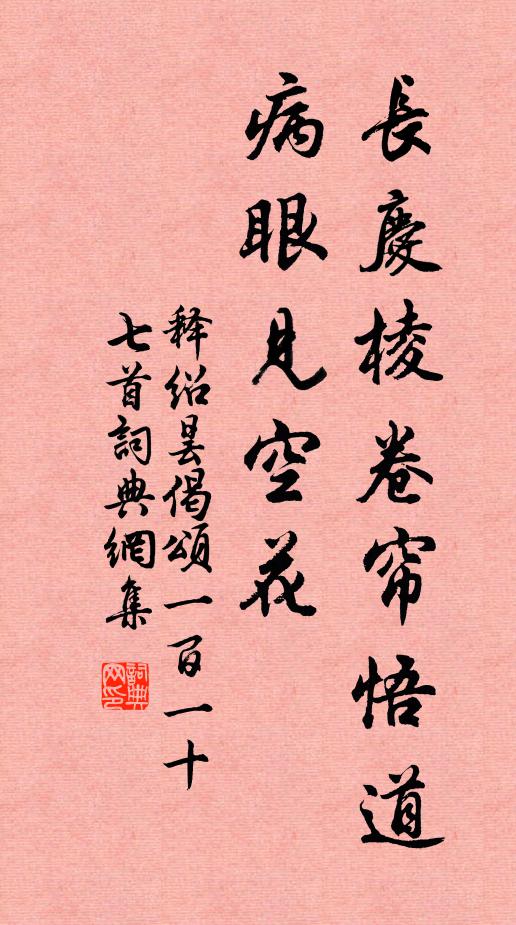 長慶棱卷帘悟道
病眼見空花
释绍昙偈頌一百一十
七首詞典網集
詞典
网印